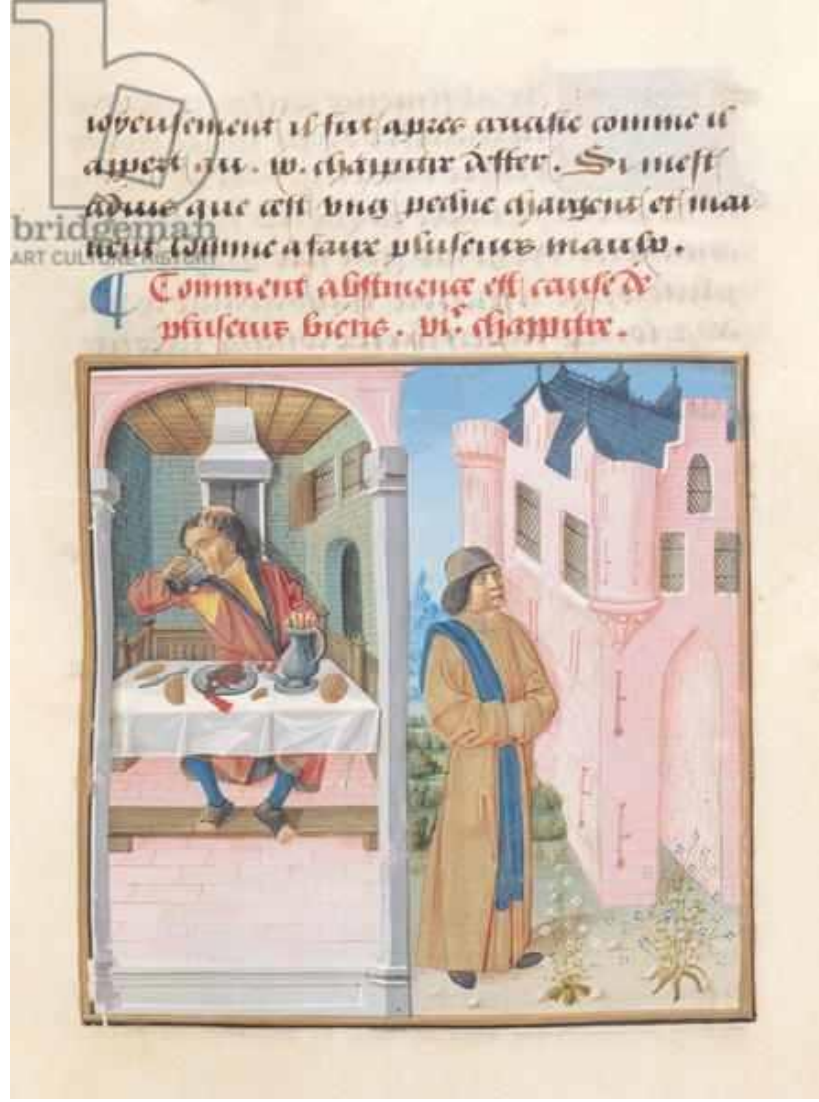 ioyeusement il fut apres comme il
appert au . chapitre dester . Si mest
aduis que cest vng pechie et
comme a faire plusieurs maulx .
¶ Comment abstinence est cause de
plusieurs biens . vi.e chapitre .
b
bridgeman
ART CULTURE HISTORY